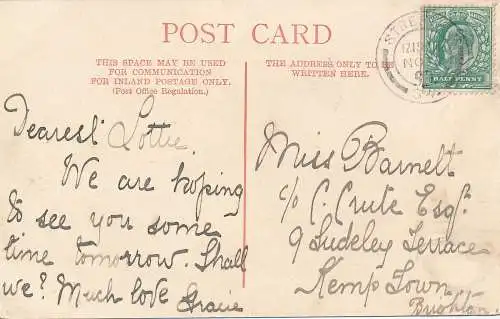 POST CARD
THIS SPACE MAY BE USED
FOR COMMUNICATION
FOR INLAND POSTAGE ONLY.
(Post Office Regulation.)
Dearest Lottie.
We are hoping
to see you some
time tomorrow. Shall
we? Much love Gracie
THE ADDRESS ONLY TO BE
WRITTEN HERE.
HALF PENNY
Miss Barnett
c/o C. Crute Esq.
9 Sudeley Terrace
Kemp Town
Brighton